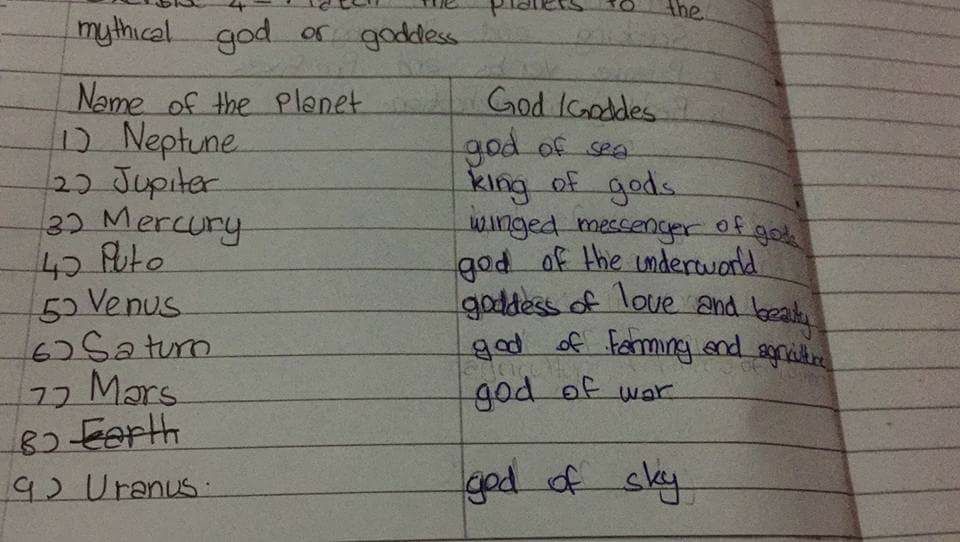 4 - Match the planets to the
mythical god or goddess
Name of the Planet God/Goddes
1) Neptune god of sea
2) Jupiter king of gods
3) Mercury winged messenger of gods
4) Pluto god of the underworld
5) Venus goddess of love and beauty
6) Saturn god of farming and agriculture
7) Mars god of war
8) Earth
9) Uranus. god of sky